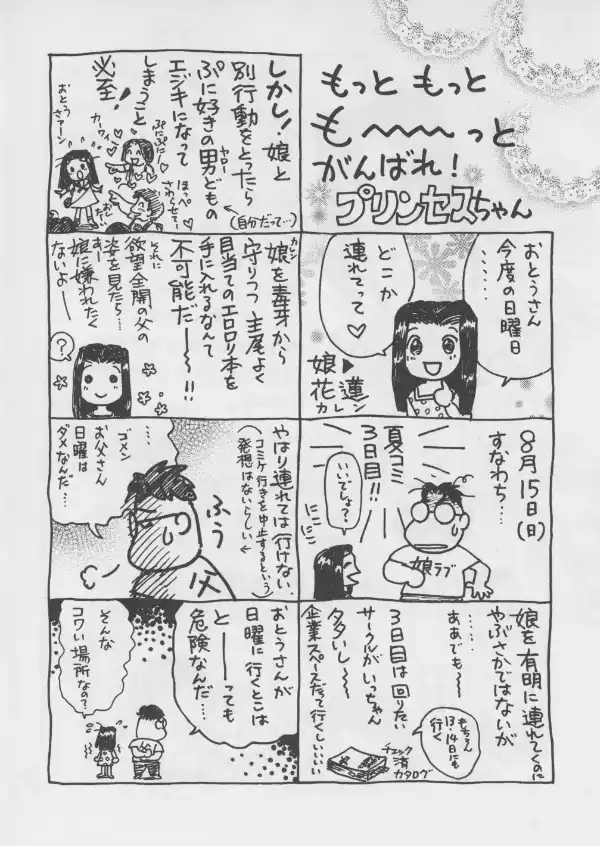 もっと もっと
も〜〜〜っと
がんばれ!
プリンセスちゃん
おとうさん
今度の日曜日
……
どこか
連れてって♡
娘▶
花蓮
カレン
8月15日(日)
すなわち…
夏コミ
3日目!!
いいでしょ?
にこにこ
娘ラブ
娘を有明に連れてくのに
やぶさかではないが
……
ああでも〜
3日目は回りたい
サークルがいっちゃん
タタいし〜〜
企業スペースだって行くしいいい
もちろん
13・14日にも
行く
チェック
済
カタログ
しかし!娘と
別行動をとったら
ぷに好きの男どもの
ヤロー
エジキになって
しまうこと
必至!
(自分だって…)
おとうさアーン
カーワイイ
ぷにぷに!
ほっぺ
さわらせてー
娘を毒牙から
カレン
守りつつ 首尾よく
目当てのエロロリ本を
手に入れるなんて
不可能だ―――!!
それに
欲望全開の父の
姿を見たら…
あー
娘に嫌われたく
ないよ―――
?
やはり連れては行けない
(コミケ行きを中止するという
発想はないらしい)
ふう
父
…
ゴメン
お父さん
日曜は
ダメなんだ…
おとうさんが
日曜に行くとこは
と――っても
危険なんだ…
……
そんな
コワい場所なの?